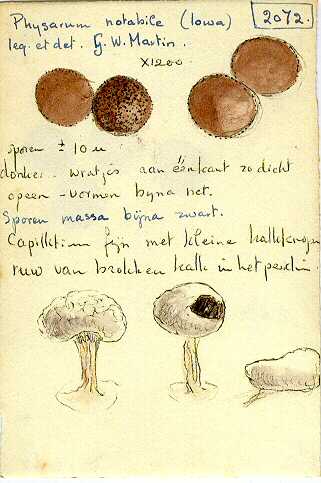 Physarum notabile (Iowa)
2072.
leg. et det. G. W. Martin.
X1200
sporen ± 10 u
donker. wratjes aan één kant zo dicht
opeen - vormen bijna net.
Sporen massa bijna zwart.
Capillitium fijn met kleine kalkknopen
ruw van brokken kalk in het peridium.